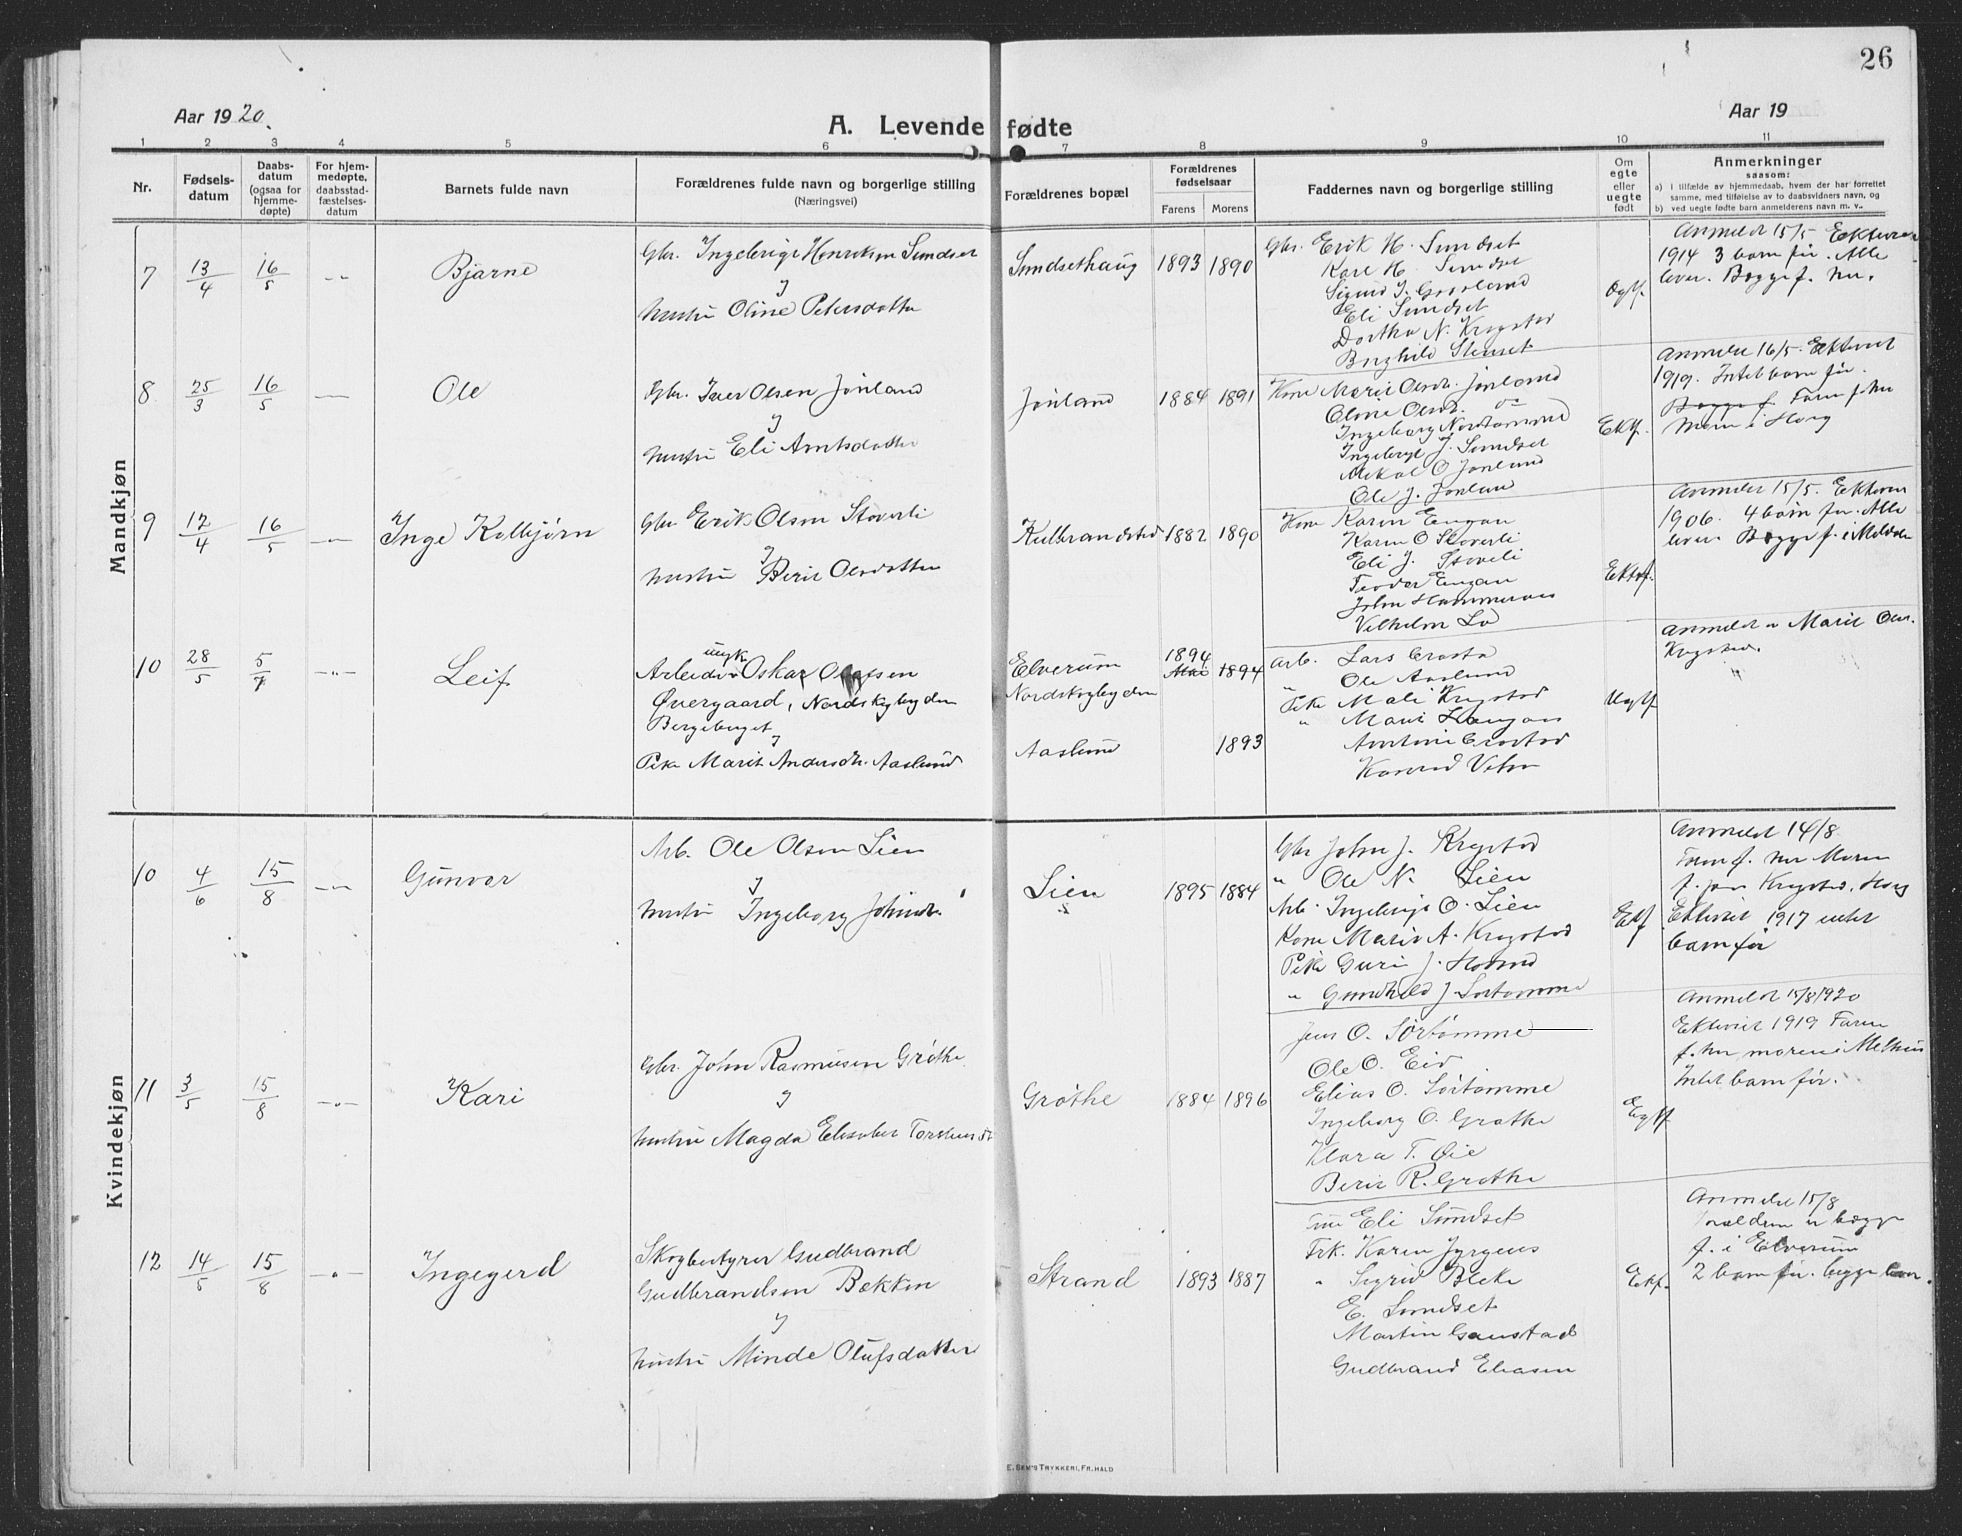 26
Aar 1920.
A. Levende fødte
Aar 19
1 2 3 4 5 6 7 8 9 10 11
Nr.
Fødsels-
datum
Daabs-
datum
(ogsaa for
hjemme-
døpte)
For hjem-
medøpte,
daabsstad-
fæstelses-
datum
Barnets fulde navn
Forældrenes fulde navn og borgerlige stilling
(Næringsvei)
Forældrenes bopæl
Forældrenes
fødselsaar
Farens Morens
Faddernes navn og borgerlige stilling
Om
egte
eller
uegte
født
Anmerkninger
saasom:
a) i tilfælde av hjemmedaab, hvem der har forrettet
samme, med tilføielse av to daabsvidners navn, og
b) ved uegte fødte barn anmelderens navn m. v.
Mandkjøn
7 13/4 16/5 -"- Bjarne
Gbr. Ingebrigt Henriksen Sundset
Hustru Oline Petersdatter
Sundsethaug 1893 1890
Gbr. Erik H. Sundset
Karl H. Sundset
Sigurd J.
Eli Sundset
Dortha N. Krogstad
Borghild Stenset
Anmeldt 15/5
1914 3 barn før. Alle
lever. Begge f. her.
8 25/3 16/5 Ole
Gbr. Iver Olsen Jönland
Hustru Eli Arntsdatter
Jönland 1884 1891
Kone Marit Olsdr. Jönland
Oline Olsdr. do
Ingeborg Nordtömme
Ingebrigt J. Sundset
Mikal O Jönland
Ole J. Jönland
Ektf.
Anmeldt 16/5. Ekteviet
1919. Intet barn før.
Begge f. Faren f. her
Moren i Horg
9 12/4 16/5 -"- Inge Kolbjørn
Gbr Erik Olsen Støverli
Hustru Berit Olsdatter
Kulbrandstad 1882 1890
Kone Karen Engan
Karen O Støverli
Eli J. Støverli
Teodor Engan
John
Vilhelm Lo
Ektef.
Anmeldt 15/5.
1906. 4 barn før. Alle
lever. Begge f. i
10 28/5 5/7 -"- Leif
ungk.
Arbeider Oskar Olafsen
Øvergaard, Nordskogbygden
Bergeberget
Pike Marit Andersdtr. Aaslund
Elverum
Nordskogbygden
Aaslund
1894
1894
1893
Arb. Lars
" Ole Aaslund
Pike Mali Krogstad
" Marit
Konrad
Uegtf
Anmeldt av Marit Olsdr.
Krogstad.
Kvindekjøn
10 4/6 15/8 -"- Gunvor
Arb. Ole Olsen Lien
Hustru Ingeborg Johnsdr.
Lien 1895 1884
Gbr John J. Krogstad
" Ole N. Lien
Arb. Ingebrigt O. Lien
Kone Marit A. Krogstad
Pike Guri J.
" Gunhild J. Sörtömme
Ektf
Anmeldt 14/8
Faren f. her Moren
f. paa Krogstad, Horg
Ekteviet 1917 intet
barn før
11 3/5 15/8 -"- Kari
Gbr. John Rasmusen Gröthe
Hustru Magda Elisabet
Gröthe 1884 1896
Jens O. Sörtömme
Ole O. Eid
Elias O. Sörtömme
Ingeborg O. Gröthe
Klara T. Øie
Berit R. Gröthe
Egtf
Anmeldt 15/8 1920
Ekteviet 1919 Faren
f. her moren i Melhus
Intet barn før.
12 14/5 15/8 -"- Ingegerd
Skogbestyrer Gudbrand
Gudbrandsen Bækken
Hustru Minde Olufsdatter
Strand 1893 1887
Eli Sundset
Frk. Karen Jyrgens
" Sigrid Bleke
E. Sundset
Martin Gaustad
Gudbrand Eliasen
Ektf.
Anmeldt 15/8
Forældrene er begge
f. i Elverum
2 barn før. begge
E. SEM'S TRYKKERI, FR. HALD